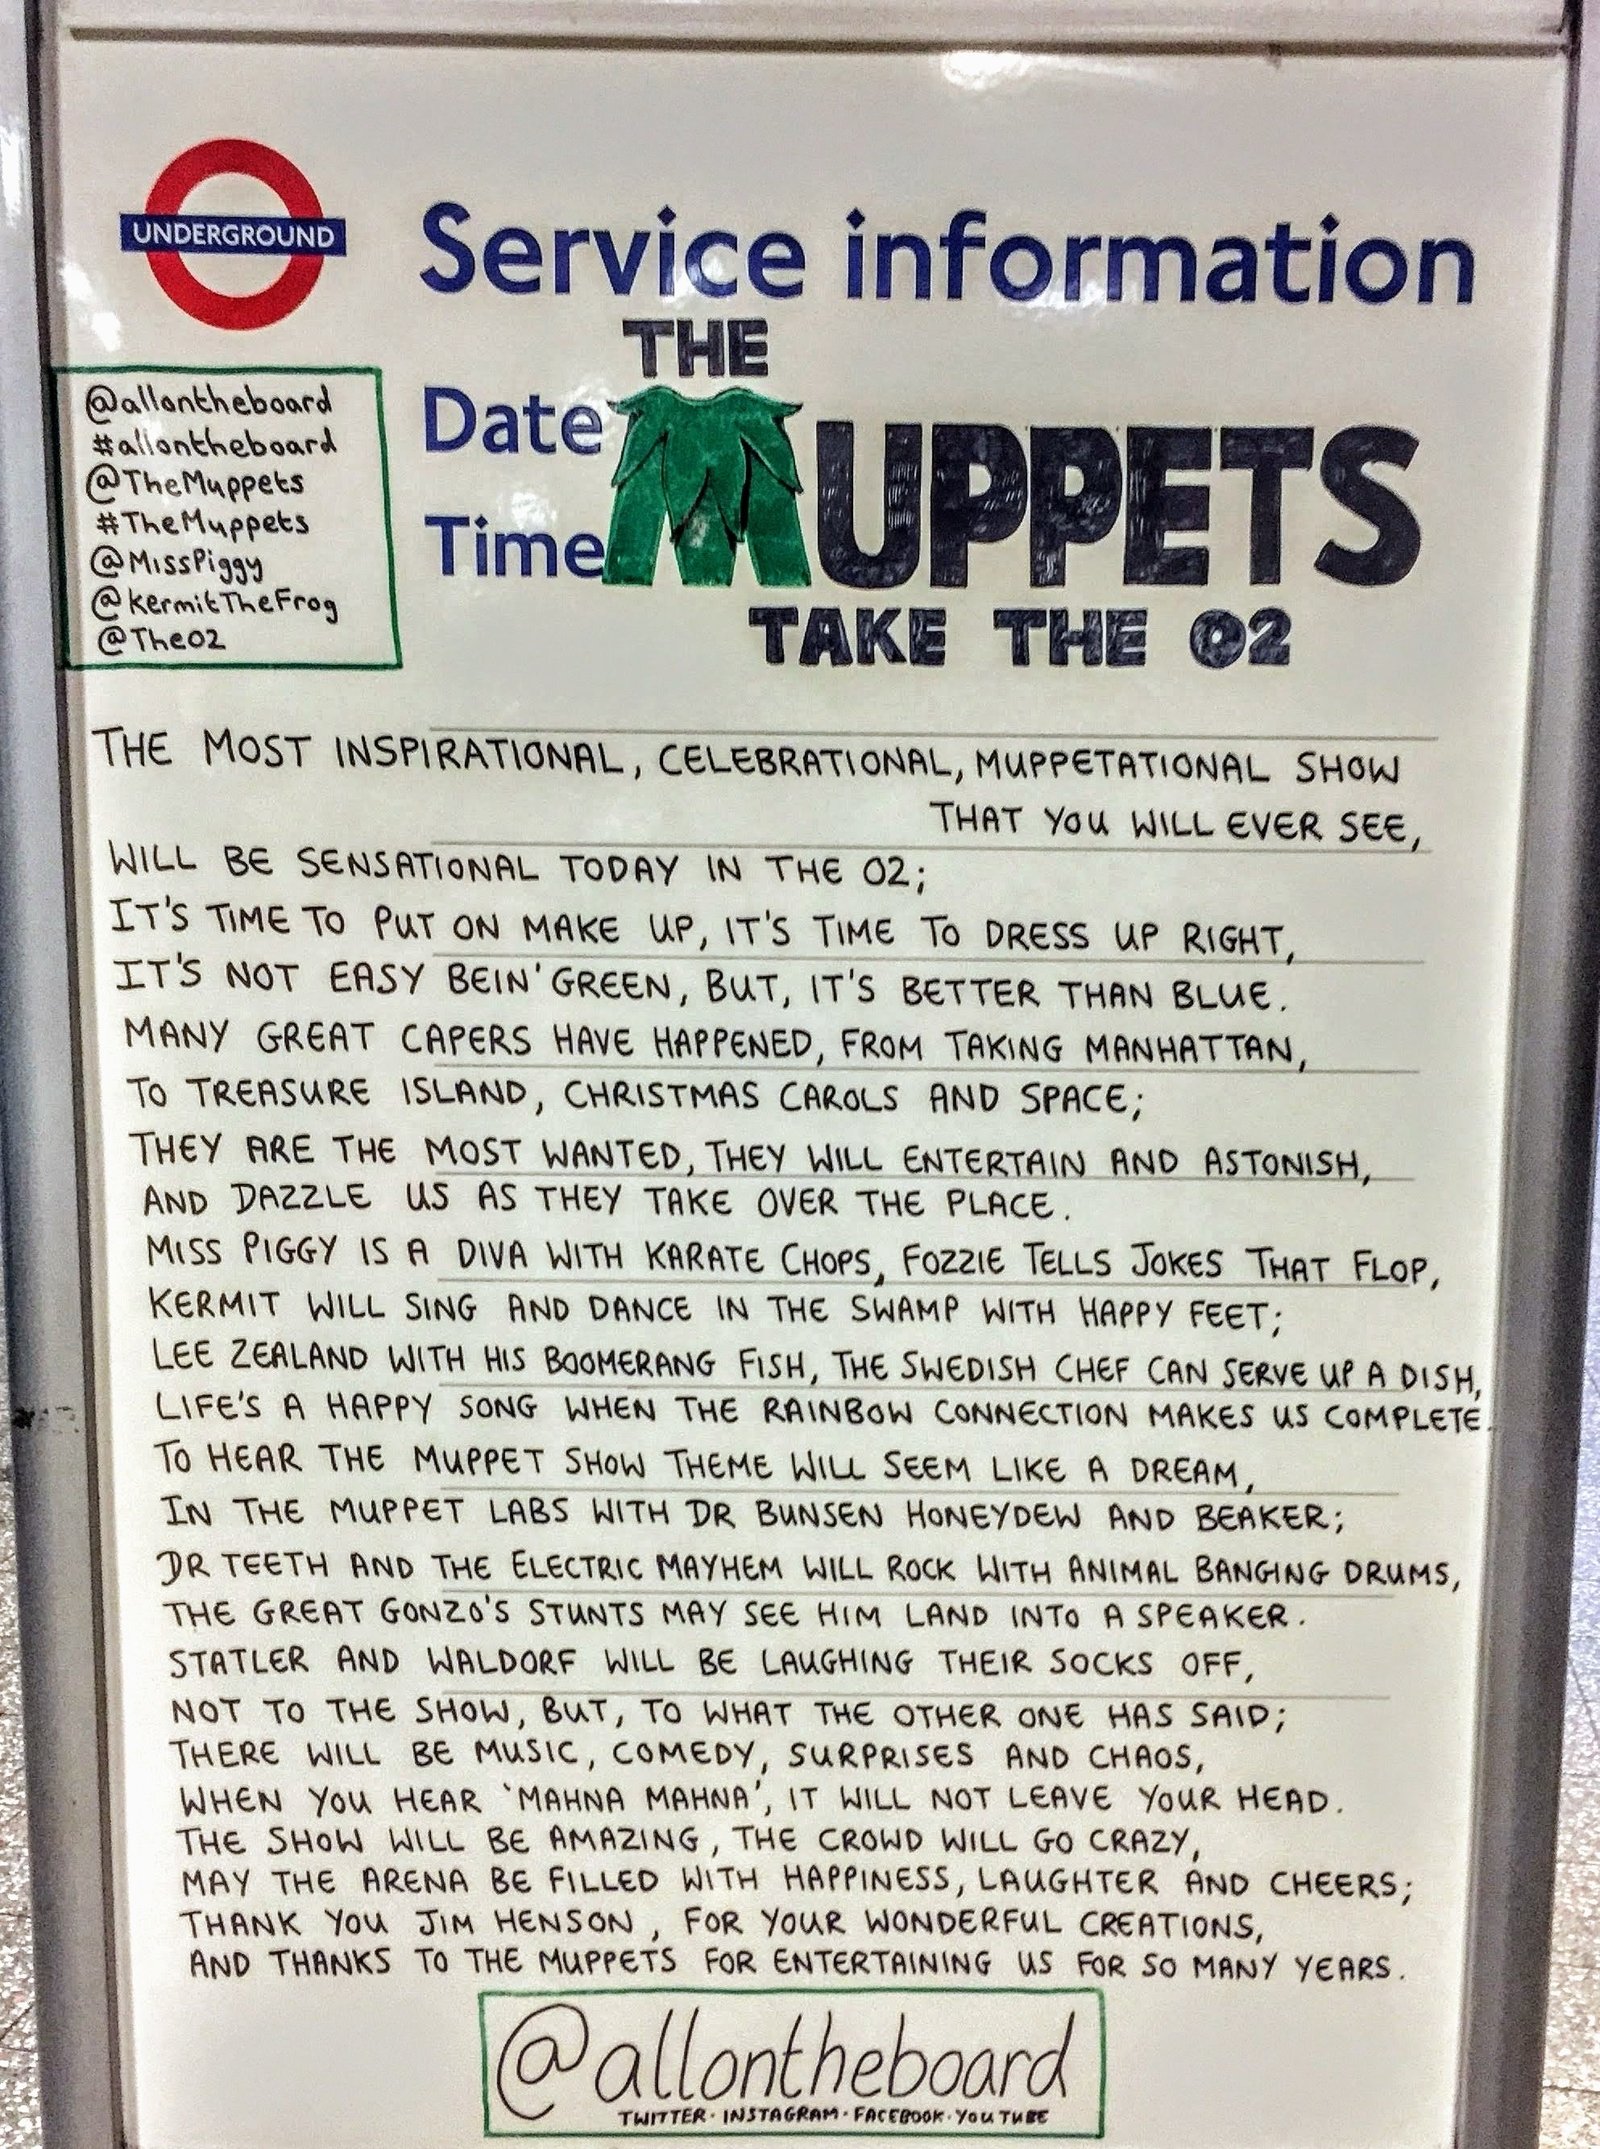 UNDERGROUND
Service information
@allontheboard
#allontheboard
@TheMuppets
#TheMuppets
@MissPiggy
@KermitTheFrog
@TheO2
Date
Time
THE
MUPPETS
TAKE THE O2
THE MOST INSPIRATIONAL, CELEBRATIONAL, MUPPETATIONAL SHOW
THAT YOU WILL EVER SEE,
WILL BE SENSATIONAL TODAY IN THE O2;
IT'S TIME TO PUT ON MAKE UP, IT'S TIME TO DRESS UP RIGHT,
IT'S NOT EASY BEIN' GREEN, BUT, IT'S BETTER THAN BLUE.
MANY GREAT CAPERS HAVE HAPPENED, FROM TAKING MANHATTAN,
TO TREASURE ISLAND, CHRISTMAS CAROLS AND SPACE;
THEY ARE THE MOST WANTED, THEY WILL ENTERTAIN AND ASTONISH,
AND DAZZLE US AS THEY TAKE OVER THE PLACE.
MISS PIGGY IS A DIVA WITH KARATE CHOPS, FOZZIE TELLS JOKES THAT FLOP,
KERMIT WILL SING AND DANCE IN THE SWAMP WITH HAPPY FEET;
LEE ZEALAND WITH HIS BOOMERANG FISH, THE SWEDISH CHEF CAN SERVE UP A DISH,
LIFE'S A HAPPY SONG WHEN THE RAINBOW CONNECTION MAKES US COMPLETE.
TO HEAR THE MUPPET SHOW THEME WILL SEEM LIKE A DREAM,
IN THE MUPPET LABS WITH DR BUNSEN HONEYDEW AND BEAKER;
DR TEETH AND THE ELECTRIC MAYHEM WILL ROCK WITH ANIMAL BANGING DRUMS,
THE GREAT GONZO'S STUNTS MAY SEE HIM LAND INTO A SPEAKER.
STATLER AND WALDORF WILL BE LAUGHING THEIR SOCKS OFF,
NOT TO THE SHOW, BUT, TO WHAT THE OTHER ONE HAS SAID;
THERE WILL BE MUSIC, COMEDY, SURPRISES AND CHAOS,
WHEN YOU HEAR 'MAHNA MAHNA', IT WILL NOT LEAVE YOUR HEAD.
THE SHOW WILL BE AMAZING, THE CROWD WILL GO CRAZY,
MAY THE ARENA BE FILLED WITH HAPPINESS, LAUGHTER AND CHEERS;
THANK YOU JIM HENSON, FOR YOUR WONDERFUL CREATIONS,
AND THANKS TO THE MUPPETS FOR ENTERTAINING US FOR SO MANY YEARS.
@allontheboard
TWITTER · INSTAGRAM · FACEBOOK · YOUTUBE